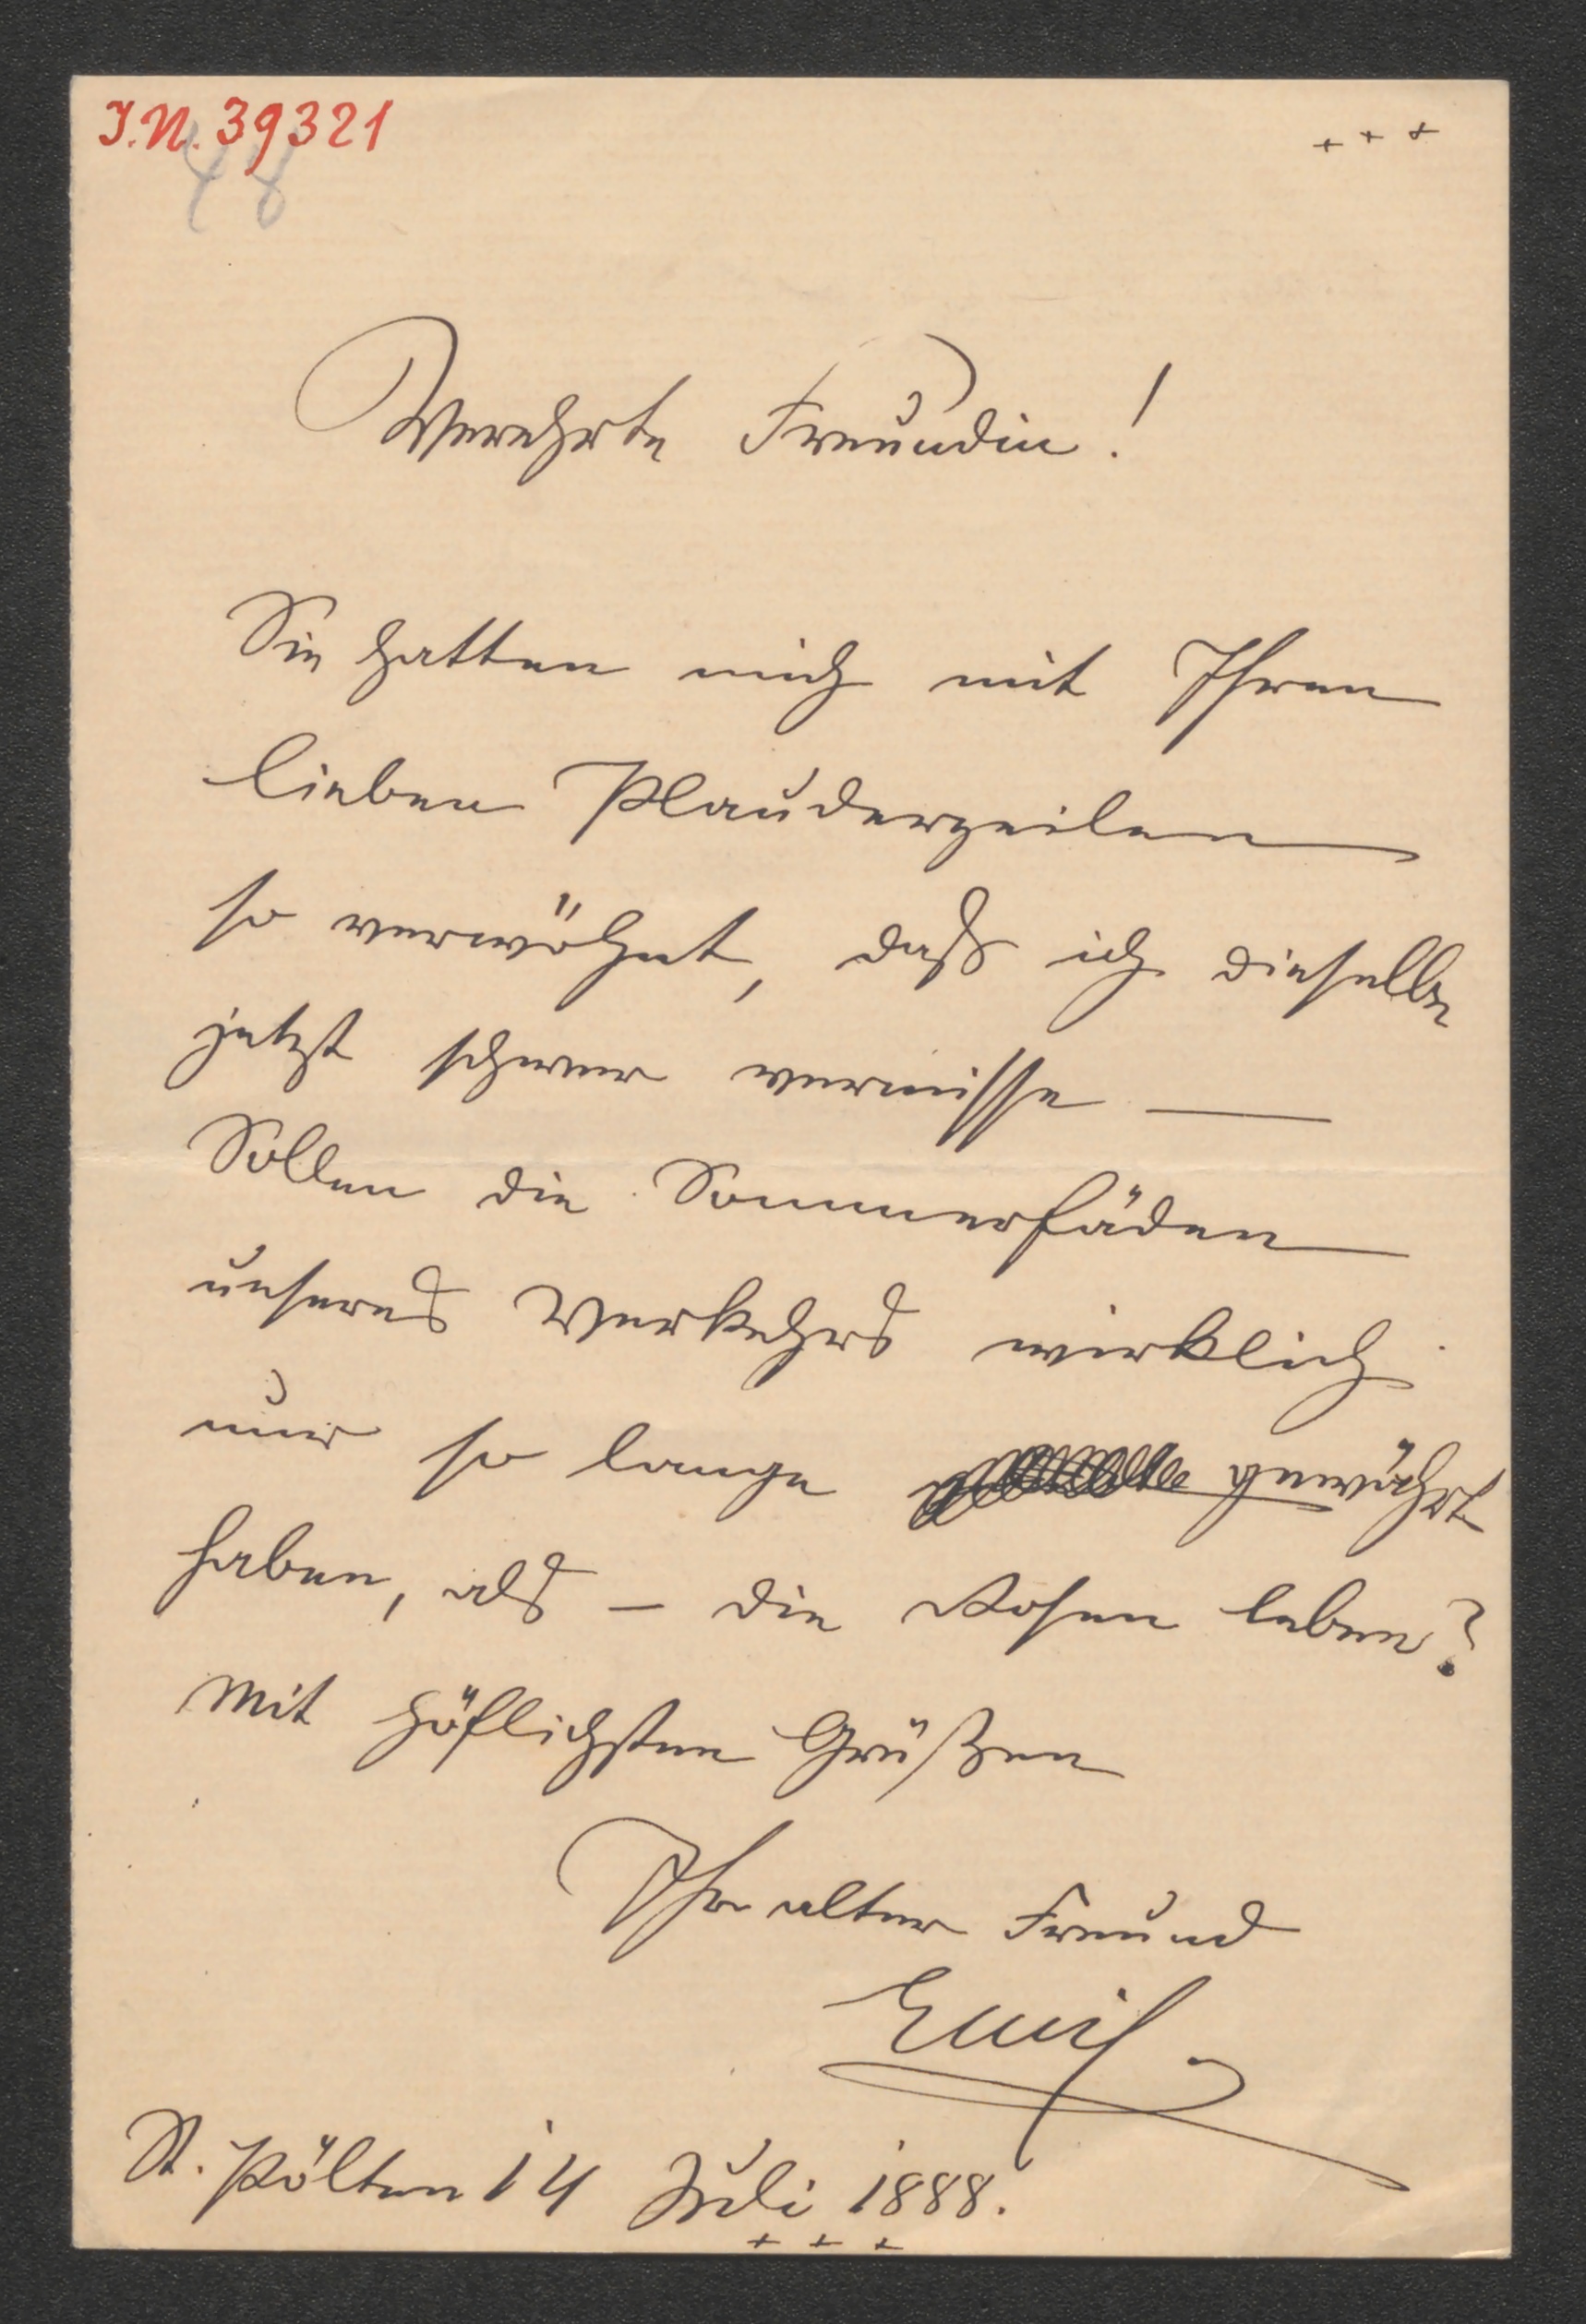 I.N. 39321
48
+ + +
Verehrte Freundin!
Sie hatten mich mit Ihren
lieben Plauderzeilen
so verwöhnt, daß ich dieselben
jetzt schwer vermisse —
Sollen die Sommerfäden
unseres Verkehrs wirklich
nur so lange gewährt
haben, als – die Rosen leben?
Mit höflichsten Grüßen
Ihr alter Freund
Emil
St. Pölten 14 Juli 1888.
+ + +